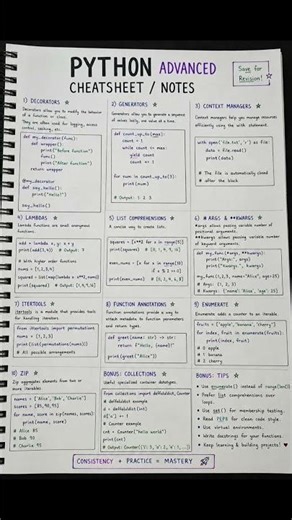 PYTHON ADVANCED
CHEATSHEET / NOTES
Save for
Revision!
1) DECORATORS
Decorators allow you to modify the behavior
of a function or class.
They are often used for logging, access
control, caching, etc.
def my_decorator(func):
def wrapper():
print("Before function")
func()
print("After function")
return wrapper
@my_decorator
def say_hello():
print("Hello!")
say_hello()
2) GENERATORS
Generators allow you to generate a sequence
of values lazily, one value at a time.
def count_up_to(max):
count = 1
while count <= max:
yield count
count += 1
for num in count_up_to(3):
print(num)
# Output: 1 2 3
3) CONTEXT MANAGERS
Context managers help you manage resources
efficiently using the with statement.
with open('file.txt', 'r') as file:
data = file.read()
print(data)
# The file is automatically closed
# after the block
4) LAMBDAS
Lambda functions are small anonymous
functions.
add = lambda x, y: x + y
print(add(5, 3))
# With higher order functions
nums = [1,2,3,4]
print(squared) # Output: [1,4,9,16]
5) LIST COMPREHENSIONS
A concise way to create lists.
squares = [x**2 for x in range(5)]
print(squares) # [0, 1, 4, 9, 16]
even_nums = [x for x in range(10)
if x % 2 == 0]
print(even_nums) # [0, 2, 4, 6, 8]
6) *ARGS & **KWARGS
*args allows passing variable number of
positional arguments.
**kwargs allows passing variable number
of keyword arguments.
print("Args:", args)
print("Kwargs:", kwargs)
# Args: (1, 2, 3)
# Kwargs: {'name': 'Alice', 'age': 25}
7) ITERTOOLS
itertools is a module that provides tools
for handling iterators.
from itertools import permutations
nums = [1, 2, 3]
print(list(permutations(nums)))
# All possible arrangements
8) FUNCTION ANNOTATIONS
Function annotations provide a way to
attach metadata to function parameters
and return types.
def greet(name: str) -> str:
return f"Hello, {name}!"
print(greet("Alice"))
9) ENUMERATE
Enumerate adds a counter to an iterable.
fruits = ["apple", "banana", "cherry"]
for index, fruit in enumerate(fruits):
print(index, fruit)
# 0 apple
# 1 banana
# 2 cherry
10) ZIP
Zip aggregates elements from two or
more iterables.
names = ['Alice', 'Bob', 'Charlie']
scores = [85, 90, 95]
for name, score in zip(names, scores):
print(name, score)
# Alice 85
# Bob 90
# Charlie 95
BONUS: COLLECTIONS
Useful specialized container datatypes.
from collections import defaultdict, Counter
# defaultdict example
d = defaultdict(int)
d['a'] += 1
# Counter example
cnt = Counter("hello world")
print(cnt)
BONUS: TIPS
Use enumerate() instead of range(len()).
Prefer list comprehensions over
loops.
Use set() for membership testing.
Read PEP8 for clean code style.
Use virtual environments.
Write docstrings for your functions.
Keep learning & building projects!
CONSISTENCY + PRACTICE = MASTERY